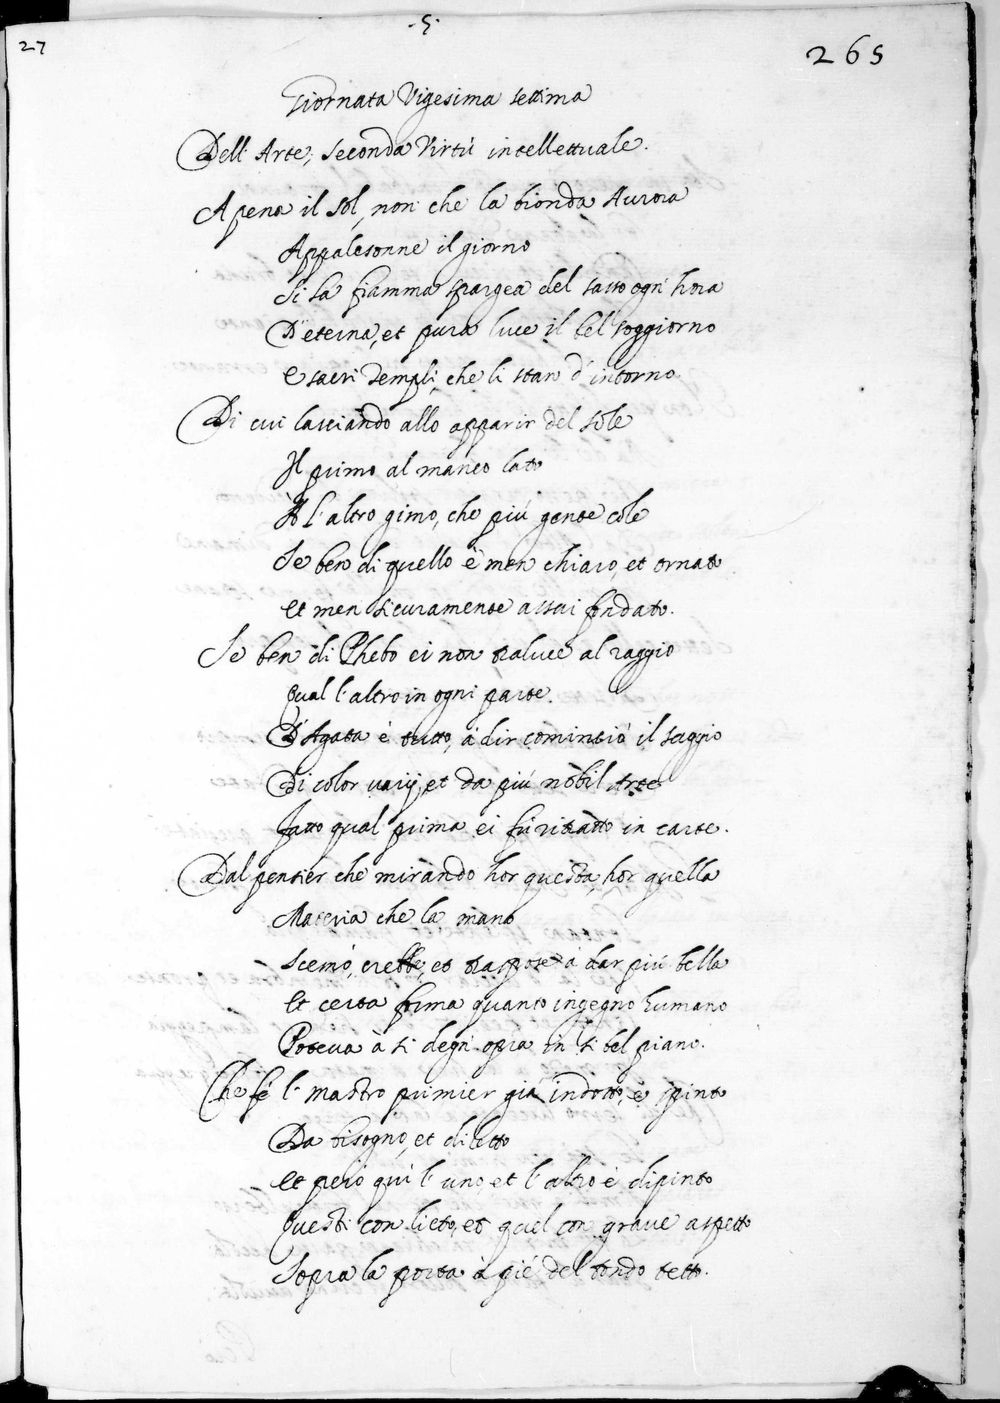 27
.5.
265
Giornata Vigesima settima
Dell' Arte, seconda Virtù intellettuale.
Apena il sol, non che la bionda Aurora
Appalesonne il giorno
Si la fiamma spargea del sasso ogn' hora
D'eterna, et pura luce il bel soggiorno
E sacri Tempii, che li stan d'intorno
Di cui lasciando allo apparir del sole
Il primo al manco lato
A l'altro gimo, che più gente cole
Se ben di quello è men chiaro, et ornato
et men sicuramente assai fondato.
Se ben di Phebo ei non traluce al raggio
Qual l'altro in ogni parte.
D'Agata è tutto, à dir cominciò il saggio
Di color varij, et da più nobil Arte
Fatto qual prima ei fù ritratto in carte.
Dal pensier che mirando hor questa, hor quella
Materia che la mano
Scemò, crebbe, et traspose à dar più bella
Et certa forma quanto ingegno humano
Poteva à sì degn' opra in sì bel piano.
Che fé l' mastro primier già indotto, e spinto
Da bisogno, et diletto
Et però quì l'uno, et l'altro è dipinto
Questi con lieto, et quel con grave aspetto
Sopra la porta à piè del tondo tetto.